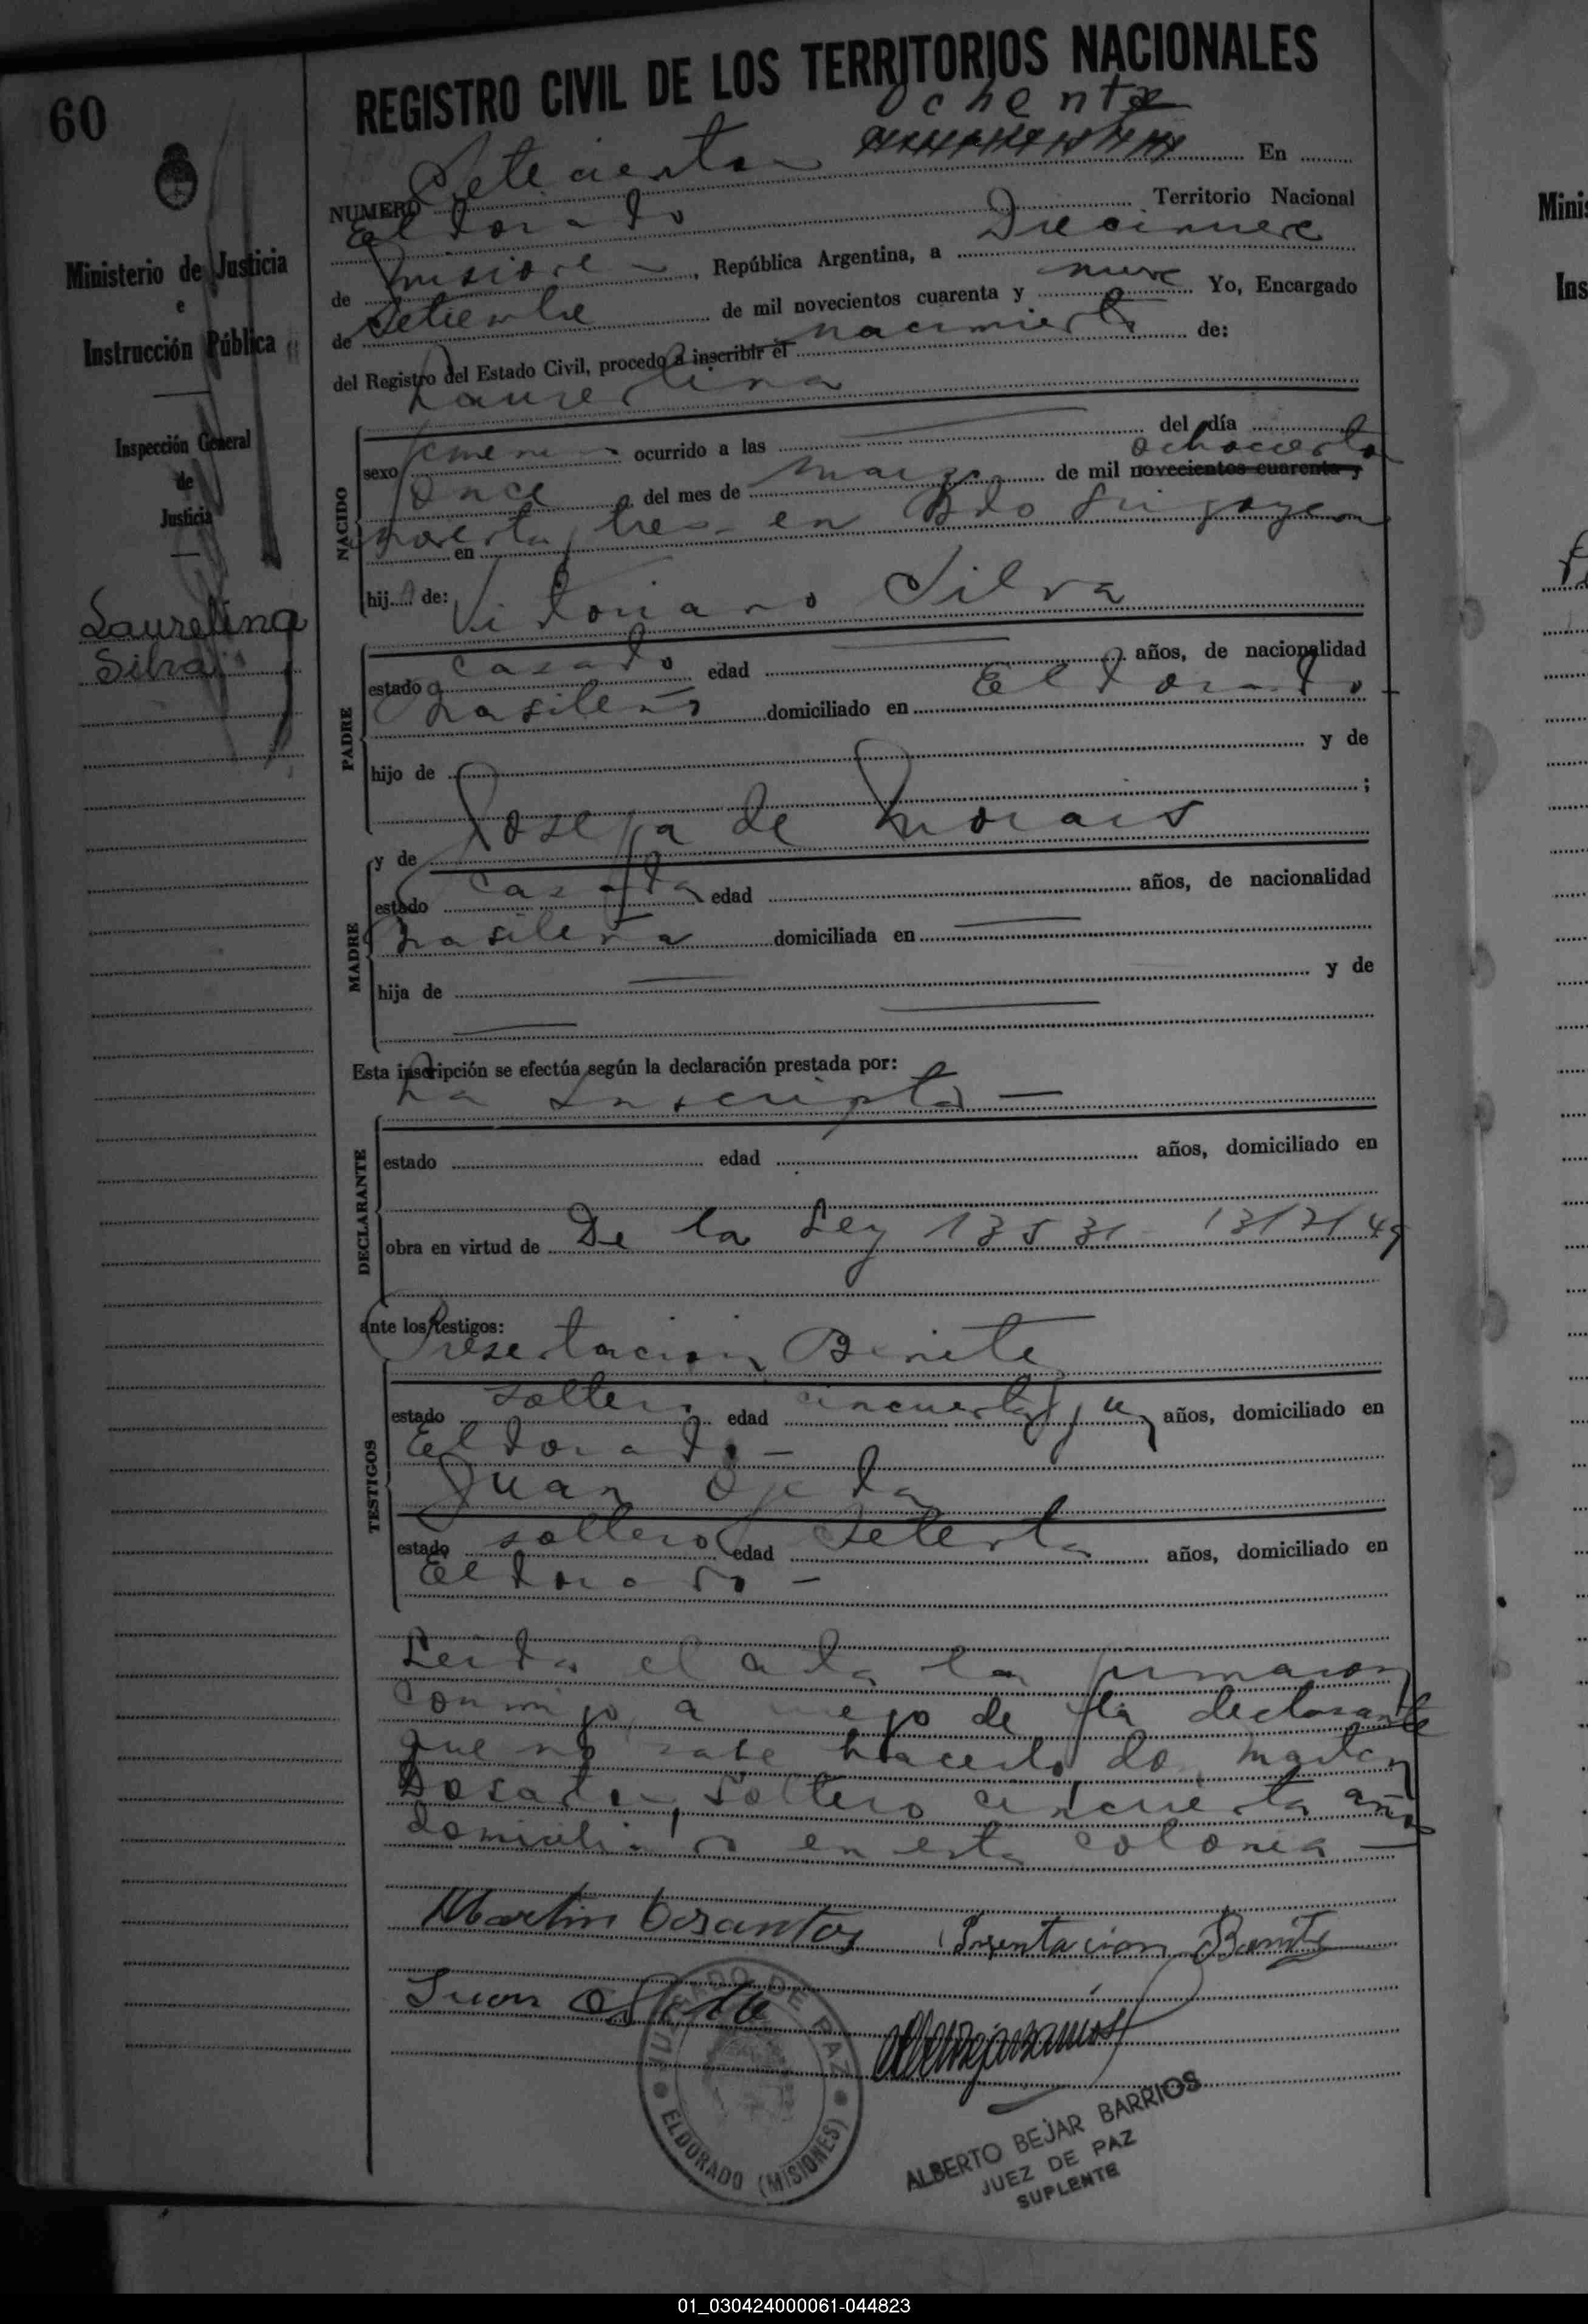 60
REGISTRO CIVIL DE LOS TERRITORIOS NACIONALES
Ochenta
NUMERO Setecientos En
Eldorado Territorio Nacional
de Misiones, República Argentina, a Diecinueve
de Setiembre de mil novecientos cuarenta y nueve Yo, Encargado
del Registro del Estado Civil, procedo a inscribir el nacimiento de:
Laurelina
sexo femenino ocurrido a las del día
once del mes de marzo de mil novecientos cuarenta y ochocientos
noventa y tres en
hija de: Vitoriano Silva
NACIDO
estado casado edad años, de nacionalidad
brasileño domiciliado en Eldorado
hijo de y de
;
PADRE
y de Josefa de Morais
estado casada edad años, de nacionalidad
brasileña domiciliada en
hija de y de
MADRE
Esta inscripción se efectúa según la declaración prestada por:
La Inscripta
estado edad años, domiciliado en
obra en virtud de De la Ley 13531 13/7/49
DECLARANTE
ante los testigos:
Presentacion Benite
estado soltero edad cincuenta y un años, domiciliado en
Eldorado
Juan Ojeda
estado soltero edad Setenta años, domiciliado en
Eldorado
TESTIGOS
Leida el acta la firmaron
conmigo a ruego de la declarante
que no sabe hacerlo don Martin
soltero cincuenta años
domiciliado en esta colonia
Martin Presentacion Benite
Juan
JUZGADO DE PAZ
ELDORADO (MISIONES)
ALBERTO BEJAR BARRIOS
JUEZ DE PAZ
SUPLENTE
Ministerio de Justicia
e
Instrucción Pública
Inspección General
de
Justicia
Laurelina
Silva
Minis
Ins
01_030424000061-044823